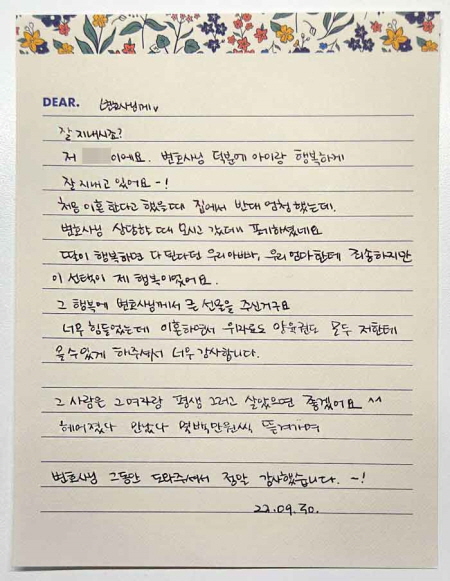 DEAR. 변호사님께
잘 지내시죠?
저 이에요. 변호사님 덕분에 아이랑 행복하게
잘 지내고 있어요 ~!
처음 이혼한다고 했을때 집에서 반대 엄청 했는데,
변호사님 상담할 때 모시고 갔더니 포기하셨네요
딸이 행복하면 다 된다던 우리아빠, 우리엄마한테 죄송하지만
이 선택이 제 행복이었어요.
그 행복에 변호사님께서 큰 선물을 주신거구요
너무 힘들었는데 이혼하면서 위자료도 양육권도 모두 저한테
올수있게 해주셔서 너무 감사합니다.
그 사람은 그여자랑 평생 그러고 살았으면 좋겠어요 ^^
헤어졌다 만났다 몇백만원씩 뜯겨가며
변호사님 그동안 도와주셔서 정말 감사했습니다. ~!
22.09.30.